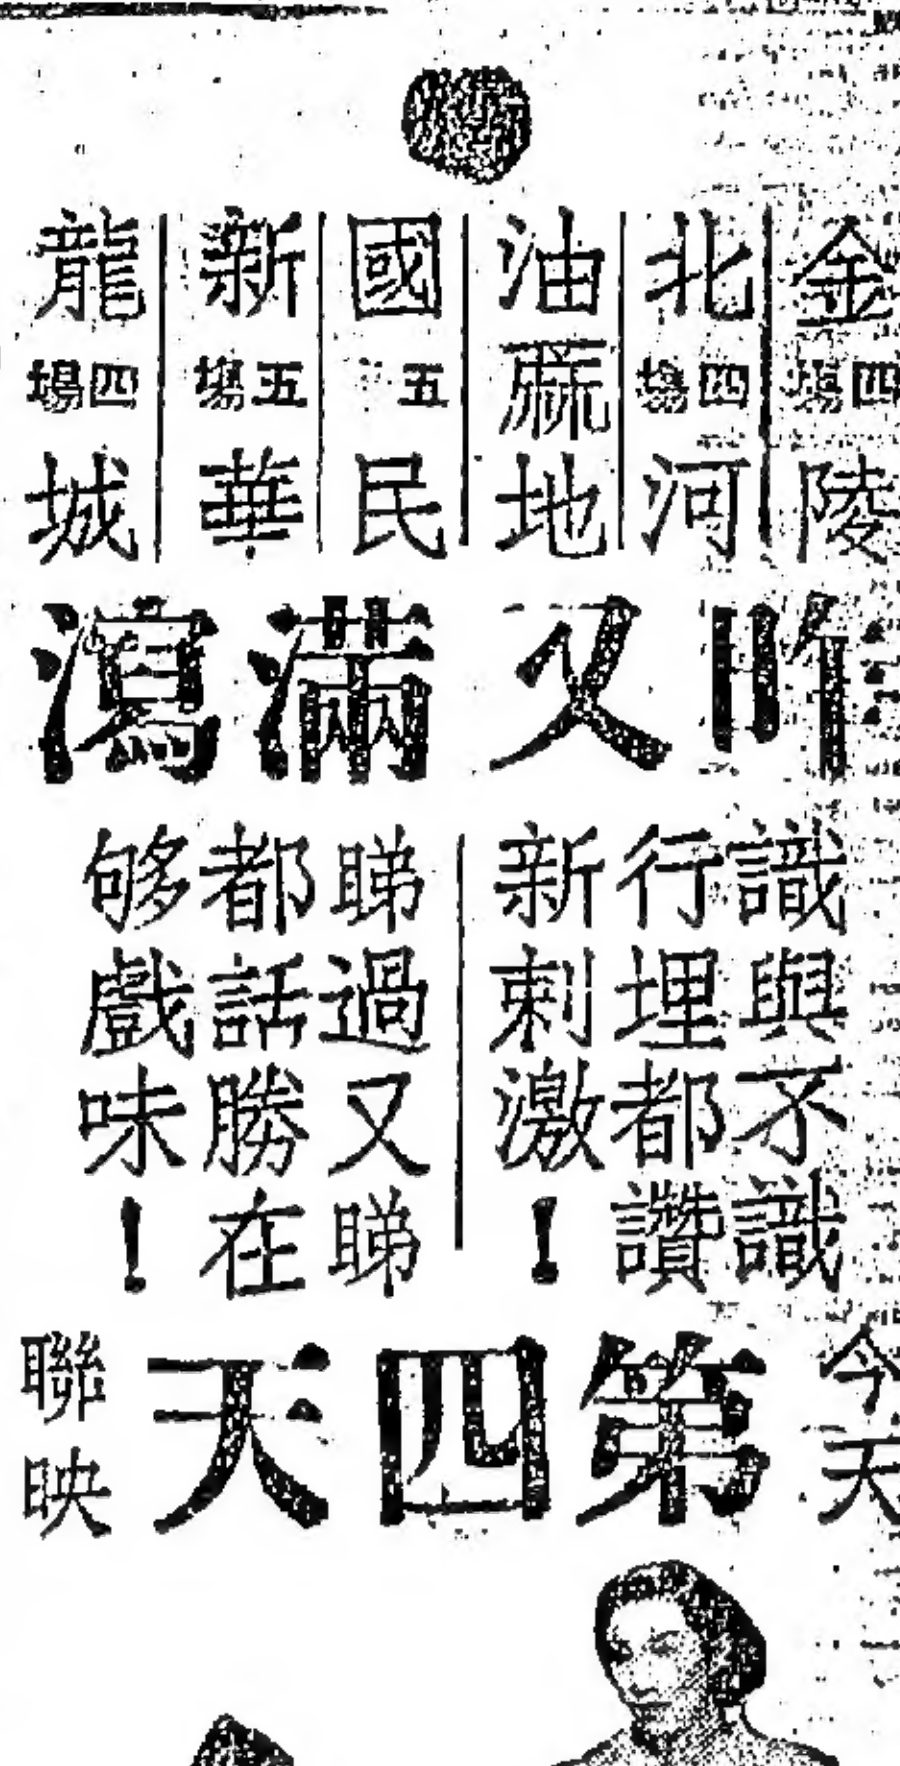 金陵
四場
北河
四場
油蔴地
國民
五
新華
五場
龍城
四場
昨又滿瀉
識與不識
行埋都讚
新刺激！
睇過又睇
都話勝在
够戲味！
今天
第四天
聯映